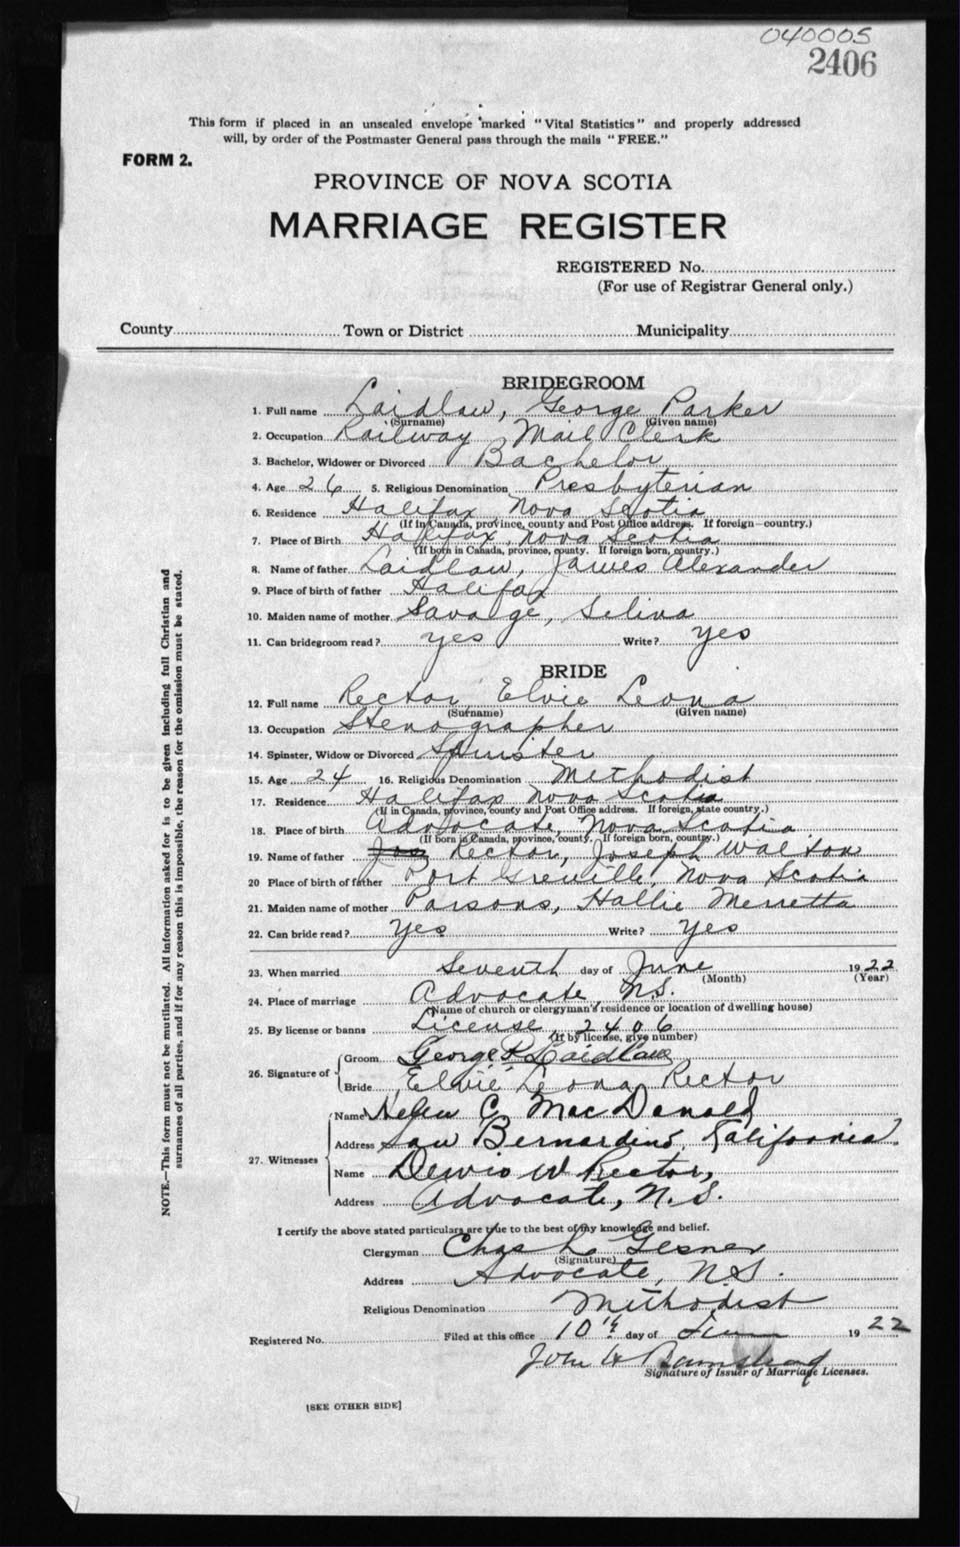 040005
2406
This form if placed in an unsealed envelope marked "Vital Statistics" and properly addressed
will, by order of the Postmaster General pass through the mails "FREE."
FORM 2.
PROVINCE OF NOVA SCOTIA
MARRIAGE REGISTER
REGISTERED No.
(For use of Registrar General only.)
County Town or District Municipality
BRIDEGROOM
1. Full name Laidlaw, George Parker
(Surname) (Given name)
2. Occupation Railway Mail Clerk
3. Bachelor, Widower or Divorced Bachelor
4. Age 26 5. Religious Denomination Presbyterian
6. Residence Halifax Nova Scotia
(If in Canada, province, county and Post Office address. If foreign—country.)
7. Place of Birth Halifax, Nova Scotia
(If born in Canada, province, county. If foreign born, country.)
8. Name of father Laidlaw, James Alexander
9. Place of birth of father Halifax
10. Maiden name of mother Savage, Selina
11. Can bridegroom read? yes Write? yes
BRIDE
12. Full name Rector, Elvie Leona
(Surname) (Given name)
13. Occupation Stenographer
14. Spinster, Widow or Divorced Spinster
15. Age 24 16. Religious Denomination Methodist
17. Residence Halifax Nova Scotia
(If in Canada, province, county and Post Office address. If foreign, state country.)
18. Place of birth Advocate, Nova Scotia
(If born in Canada, province, county. If foreign born, country.)
19. Name of father Rector, Joseph Walton
20 Place of birth of father Port Greville, Nova Scotia
21. Maiden name of mother Parsons, Hallie Merretta
22. Can bride read? Yes Write? Yes
23. When married Seventh day of June 1922
(Month) (Year)
24. Place of marriage Advocate, N.S.
(Name of church or clergyman's residence or location of dwelling house)
25. By license or banns License, 2406
(If by license, give number)
26. Signature of Groom George P. Laidlaw
Bride Elvie Leona Rector
27. Witnesses Name Helen C. MacDonald
Address San Bernardino, California.
Name W Rector,
Address Advocate, N.S.
I certify the above stated particulars are true to the best of my knowledge and belief.
Clergyman Chas L Gesner
(Signature)
Address Advocate, N.S.
Religious Denomination Methodist
Registered No. Filed at this office 10th day of June 1922
John
Signature of Issuer of Marriage Licenses.
[SEE OTHER SIDE]
NOTE.—This form must not be mutilated. All information asked for is to be given including full Christian and
surnames of all parties, and if for any reason this is impossible, the reason for the omission must be stated.